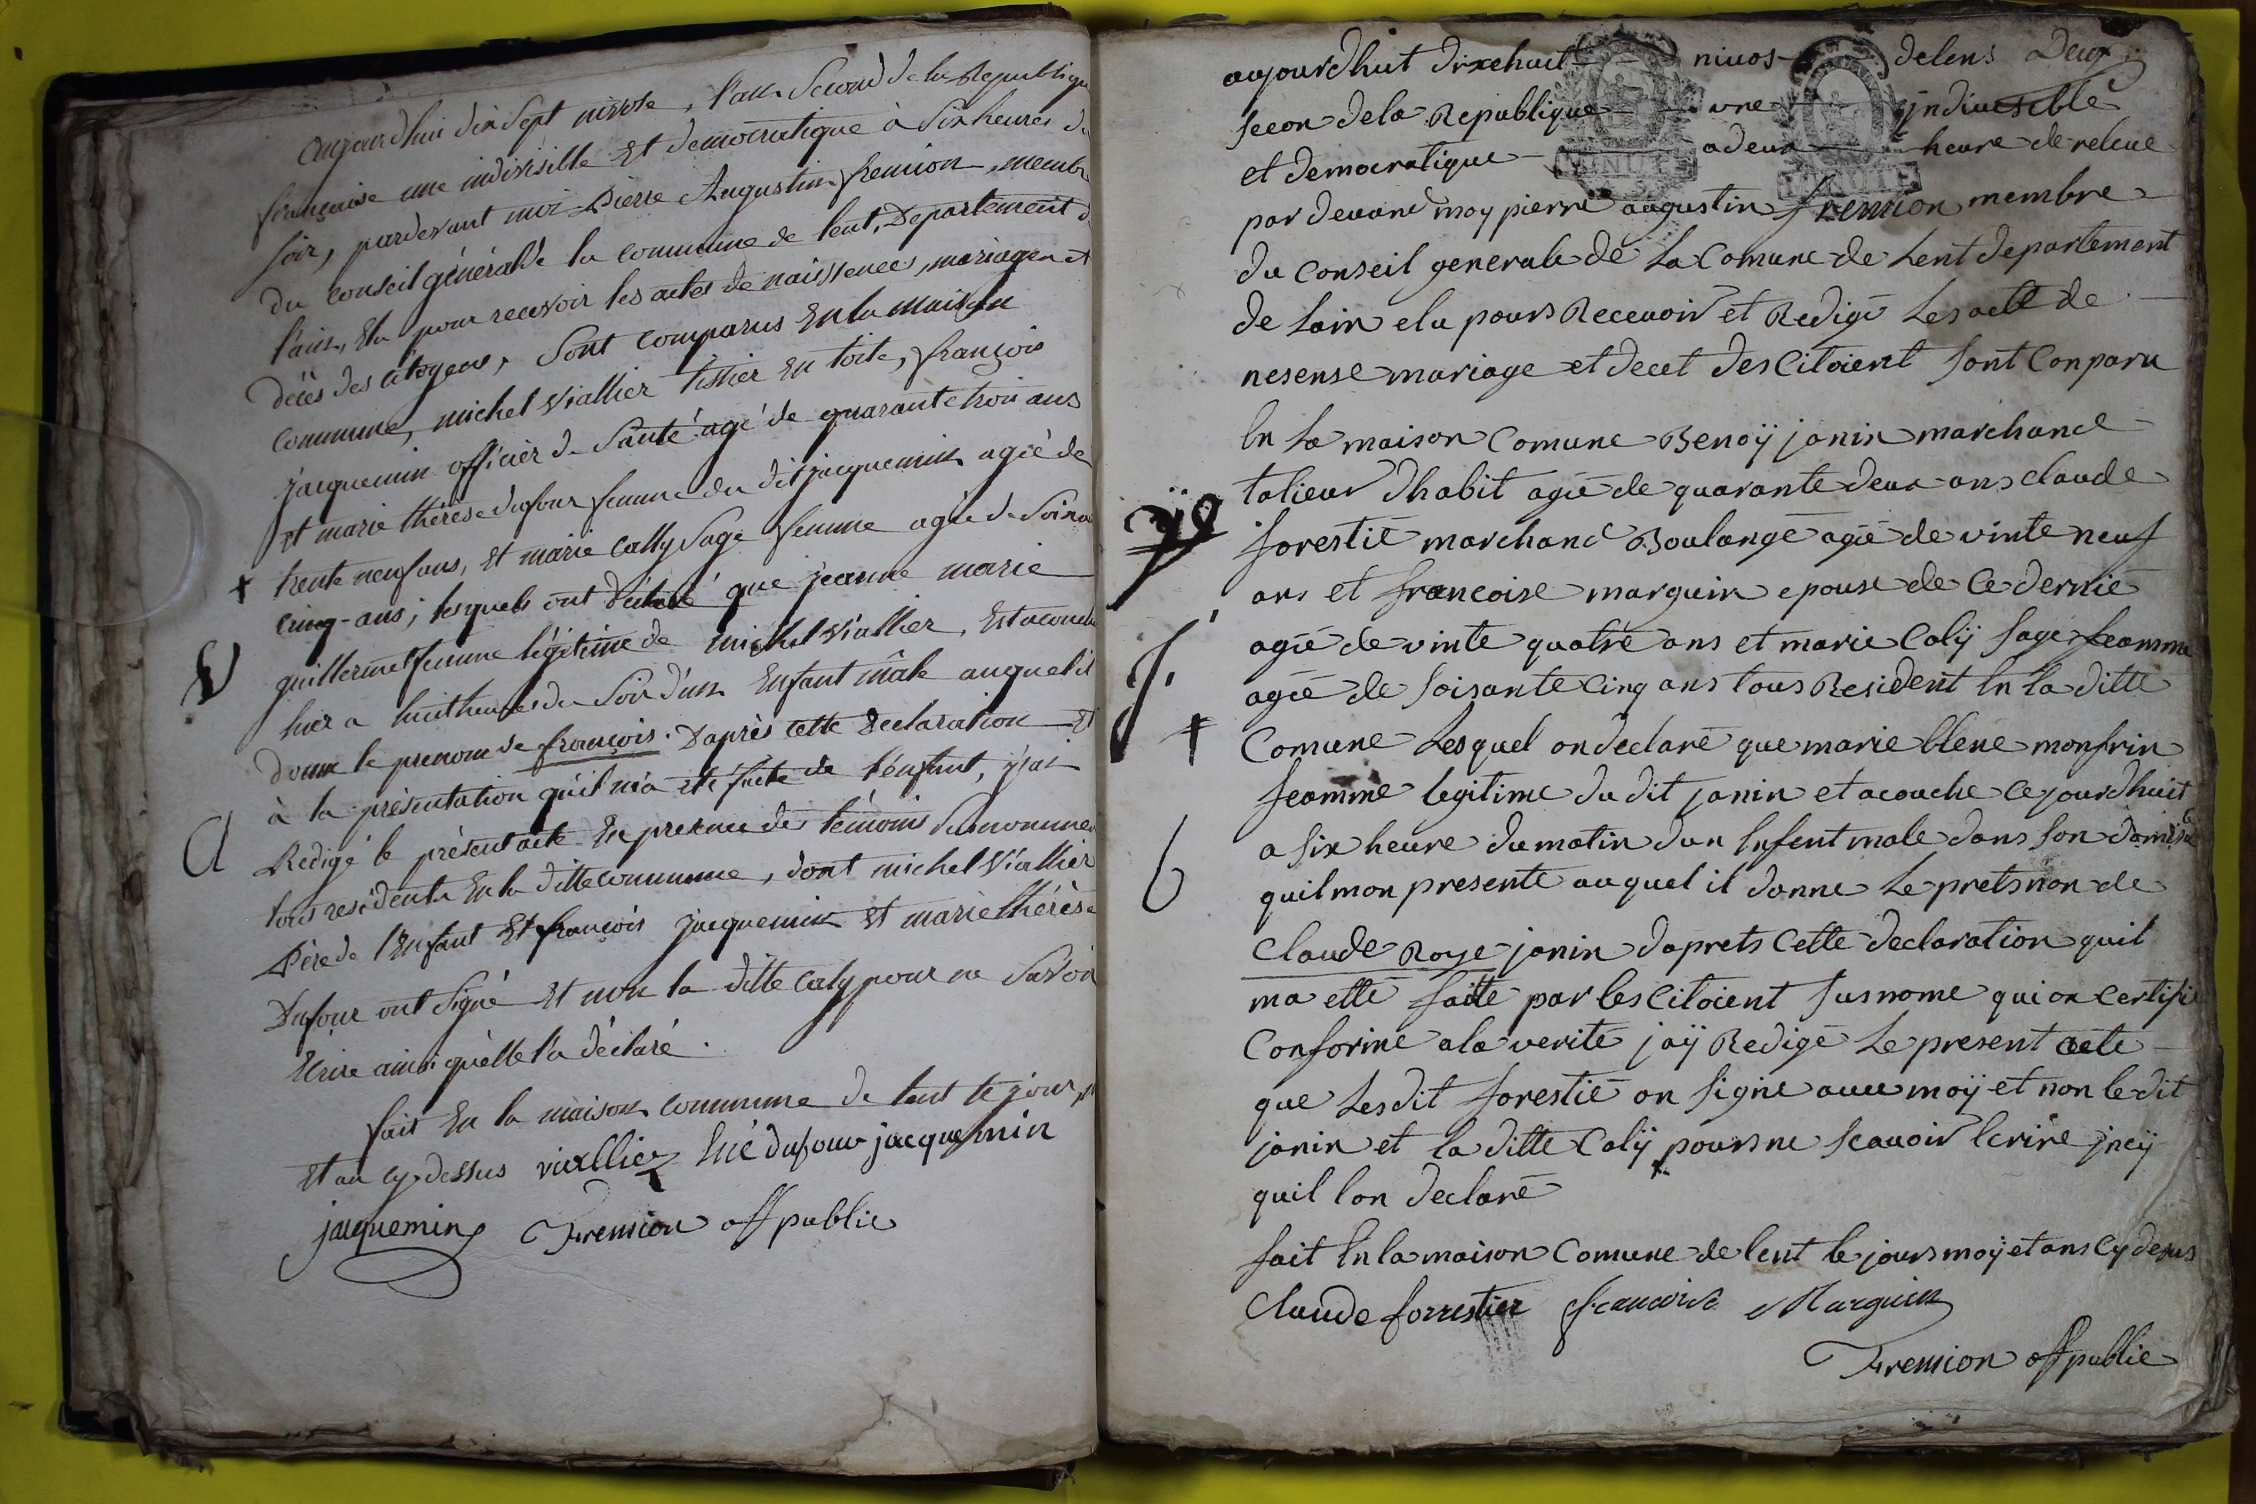 aujourdhui dix Sept nivose, l'an Second de la Republique
française une indivisible Et democratique à Six heures du
soir, pardevant moi Pierre Augustin fremion, membre
du conseil général de la commune de lent, Departement de
l'ain, Elu pour recevoir les actes de naissences, mariages et
décès des citoyens, Sont comparus En la maison
commune, michel viallier tissier En toile, françois
jacquemin officier de Santé agé de quarante trois ans
et marie thérèse dufour femme du dit jacquemin agée de
trente neuf ans, et marie cally Sage femme agée de Soixante
cinq-ans; lesquels ont déclaré que jeanne marie
guillermet femme légitime de michel viallier, Est acouchée
hier a huit heures du Soir d'un Enfant mâle auquel il
donne le prenom de françois. D'après cette Declaration Et
à la présentation qu'il m'a eté faite de l'enfant, j'ai
Redigé le présent acte En presence des témoins Surnommés
tous residents En la ditte commune, dont michel viallier
Père de l'Enfant Et françois jacquemin et marie thérèse
Dufour ont Signé Et non la ditte caly pour ne Savoir
Ecrire ainsi qu'elle l'a déclaré.
fait En la maison commune de lent le jour,
Et an cy-dessus viallier thé dufour jacquemin
jacquemin Fremion off public
aujourdhuit dixehuit nivos delens Deux
secon dela Republique une jndivesible
et democratique a deux heure de releve
par devand moy pierre augustin fremion membre
du Conseil generale de La Comune de Lent departement
de Lain elu pours Recevoir et Redigé Les acte de
nesense mariage et decet des Citoient sont Conparu
En La maison Comune Benoÿ janin marchand
talieur dhabit agié de quarante deux ans claude
forestié marchand Boulangé agié de vinte neuf
ans et francoise marguin epouse de Ce dernié
agié de vinte quatre ans et marie Calÿ sage feamme
agié de soisante Cinq ans tous Resident En La ditte
Comune Lesquel on declaré que marie blene monfrin
feamme legitime du dit janin et acouche ce jourdhuit
a six heure du matin dun Enfent male dans son domisile
quil mon presente auquel il donne Le pretsnon de
Claude Roye janin daprets Cette declaration quil
ma etté faitte par les Citoient susnome qui on Certifié
Conforme a la verité jaÿ Redigé Le present acte
que Lesdit forestié on signe avec moÿ et non le dit
janin et la ditte Calÿ pours ne scavoir Ecrire jncÿ
quil lon declaré
fait En la maison Comune de lent le jours moÿ et ans Cy desus
Claude forrestier francoise Marguin
Fremion off public